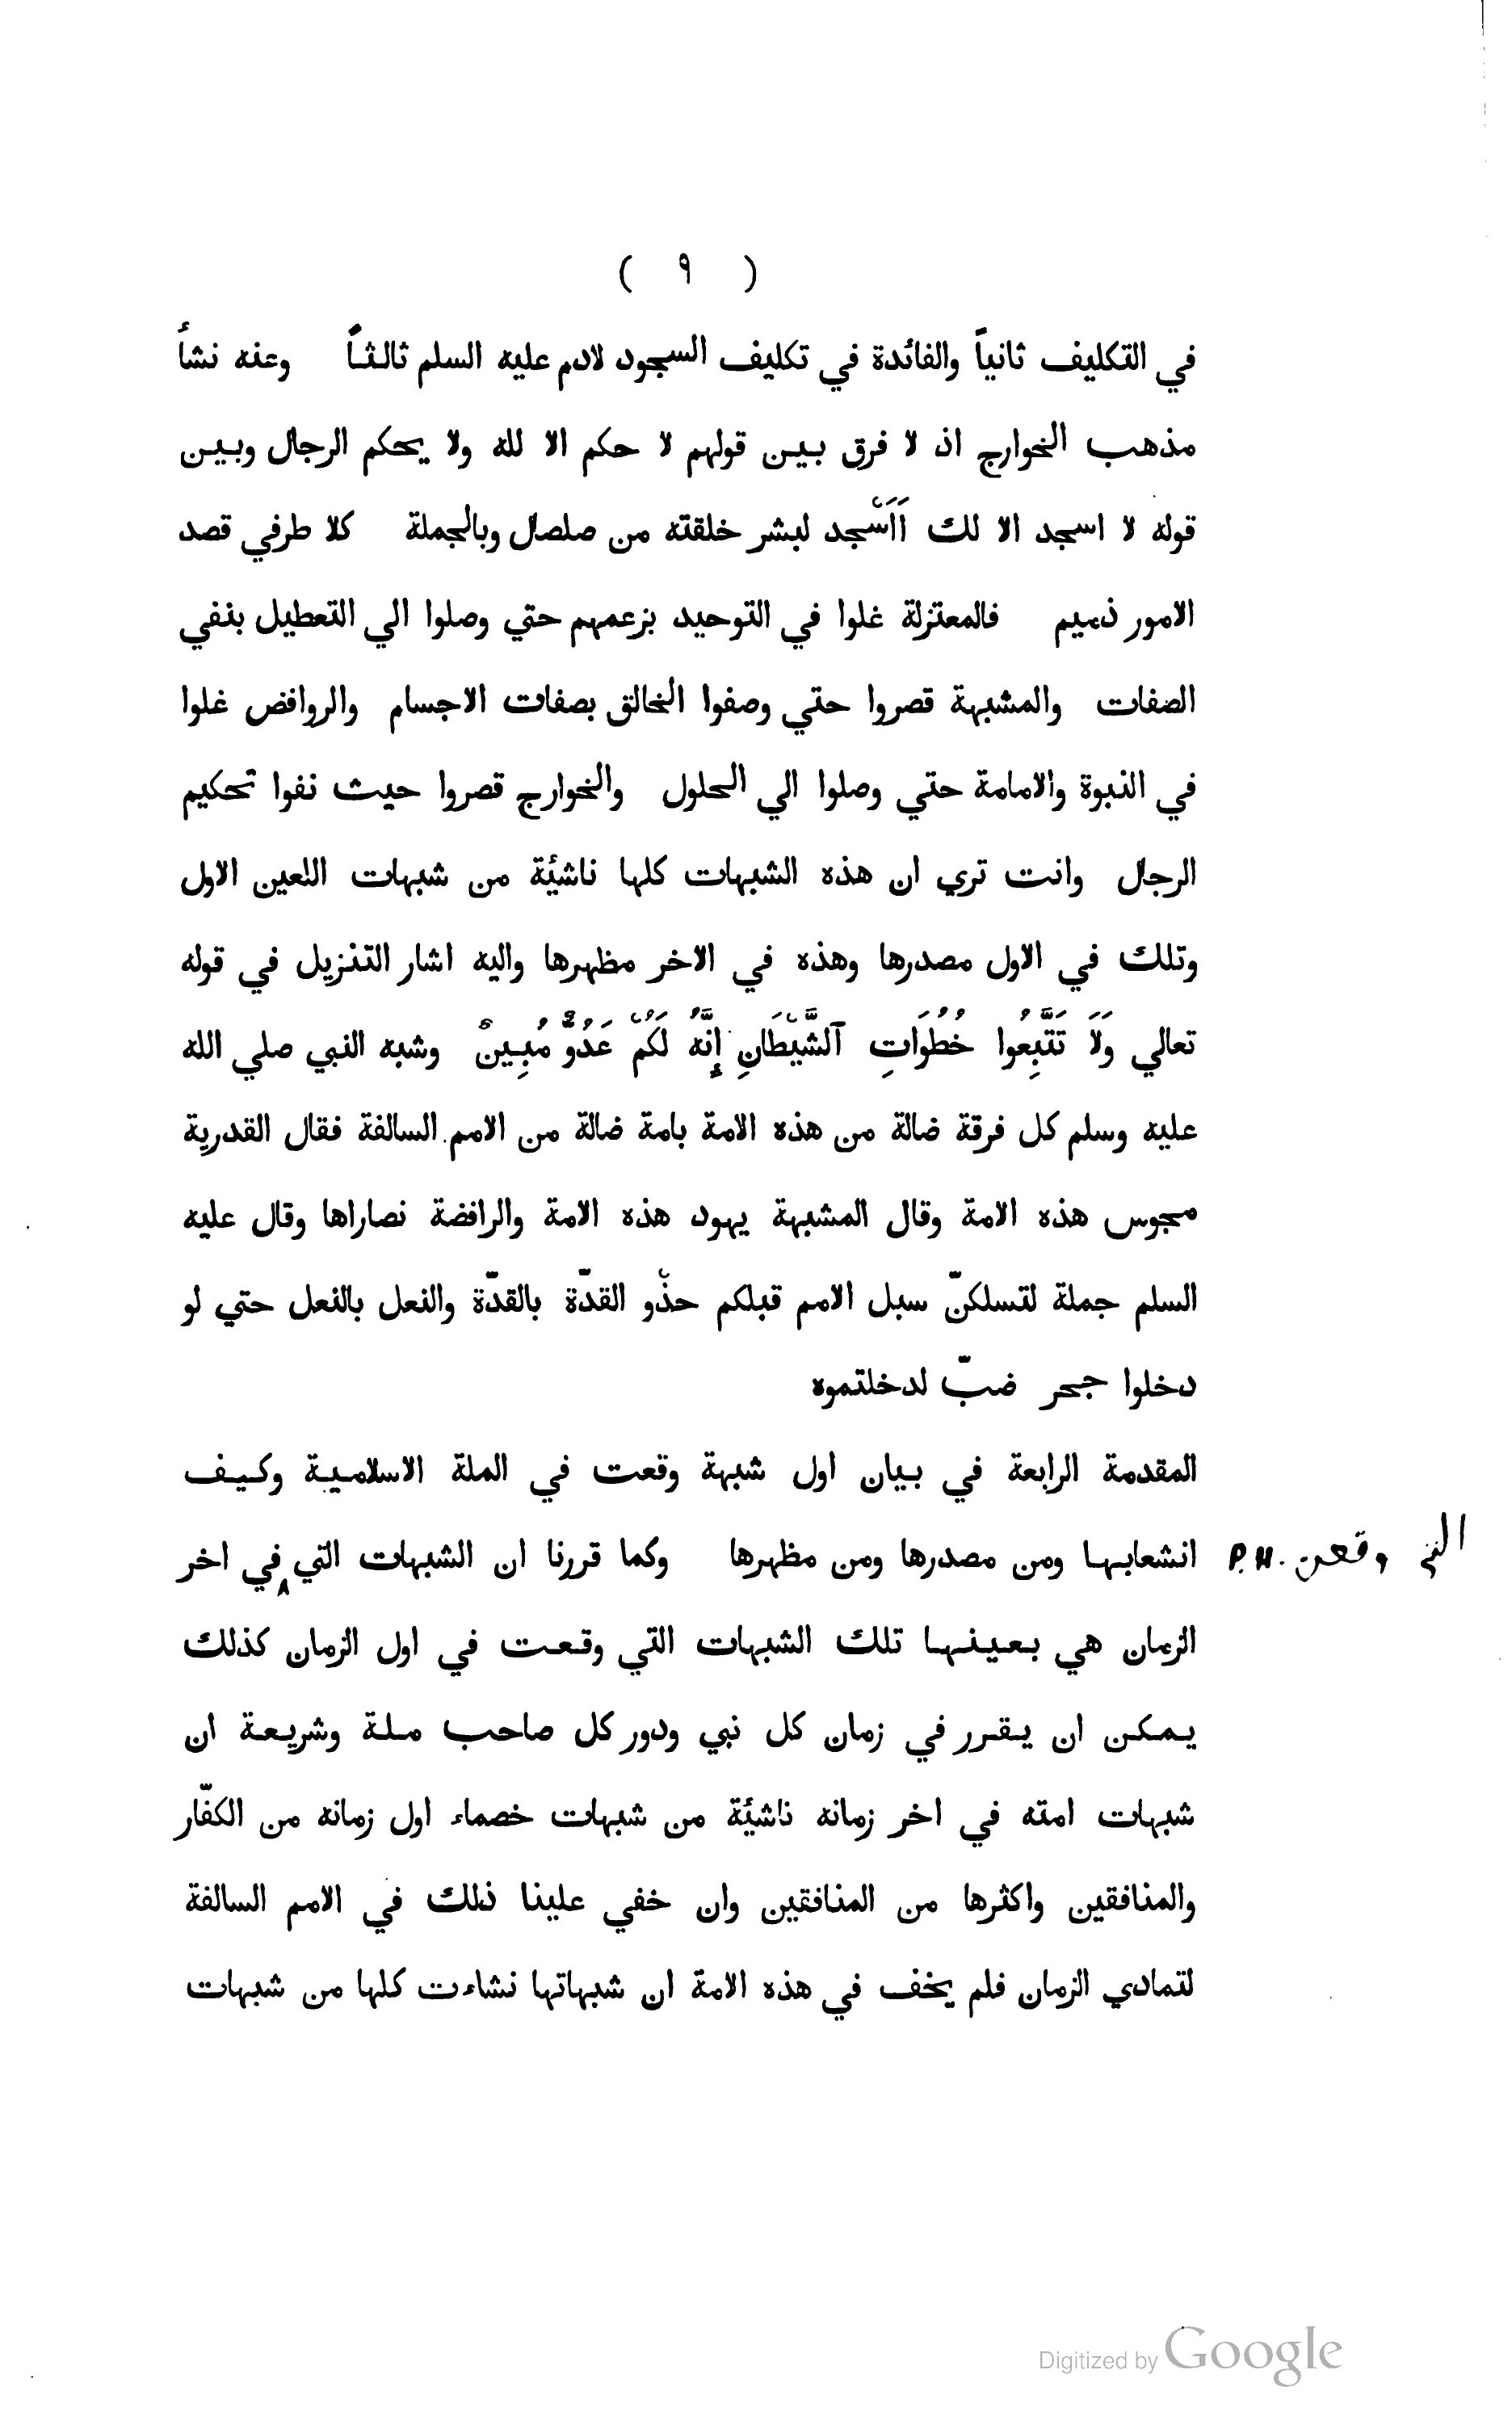 ( ٩ )
في التكليف ثانياً والفائدة في تكليف السجود لادم عليه السلم ثالثاً وعنه نشأ
مذهب الخوارج اذ لا فرق بين قولهم لا حكم الا لله ولا يحكم الرجال وبين
قوله لا اسجد الا لك أَأَسْجد لبشر خلقته من صلصال وبالجملة كلا طرفي قصد
الامور ذميم فالمعتزلة غلوا في التوحيد بزعمهم حتي وصلوا الي التعطيل بنفي
الصفات والمشبهة قصروا حتي وصفوا الخالق بصفات الاجسام والروافض غلوا
في النبوة والامامة حتي وصلوا الي الحلول والخوارج قصروا حيث نفوا تحكيم
الرجال وانت تري ان هذه الشبهات كلها ناشئة من شبهات اللعين الاول
وتلك في الاول مصدرها وهذه في الاخر مظهرها واليه اشار التنزيل في قوله
تعالي وَلَا تَتَّبِعُوا خُطُوَاتِ ٱلشَّيْطَانِ إِنَّهُ لَكُمْ عَدُوٌّ مُبِينٌ وشبه النبي صلي الله
عليه وسلم كل فرقة ضالة من هذه الامة بامة ضالة من الامم السالفة فقال القدرية
مجوس هذه الامة وقال المشبهة يهود هذه الامة والرافضة نصاراها وقال عليه
السلم جملة لتسلكنّ سبل الامم قبلكم حذْو القدّة بالقدّة والنعل بالنعل حتي لو
دخلوا جحر ضبّ لدخلتموه
المقدمة الرابعة في بيان اول شبهة وقعت في الملة الاسلامية وكيف
انشعابها ومن مصدرها ومن مظهرها وكما قررنا ان الشبهات التي في اخر
P.H. وقعن
الزمان هي بعينها تلك الشبهات التي وقعت في اول الزمان كذلك
يمكن ان يقرر في زمان كل نبي ودور كل صاحب ملة وشريعة ان
شبهات امته في اخر زمانه ناشئة من شبهات خصماء اول زمانه من الكفّار
والمنافقين واكثرها من المنافقين وان خفي علينا ذلك في الامم السالفة
لتمادي الزمان فلم يخف في هذه الامة ان شبهاتها نشاءت كلها من شبهات
Digitized by Google